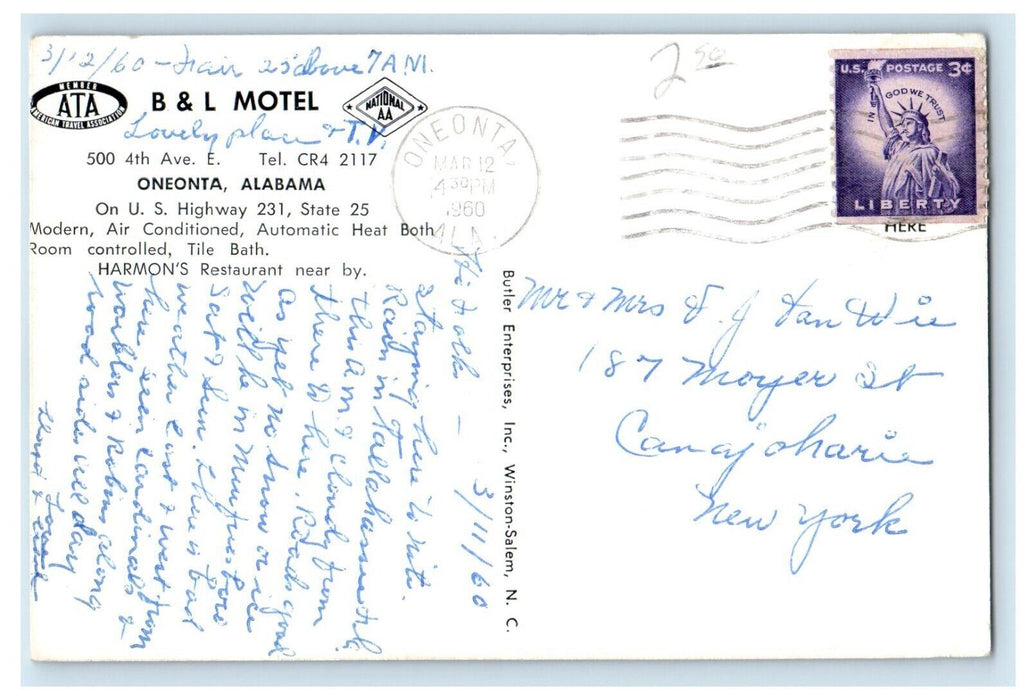 3/12/60 - Fair 25 above 7 AM.
MEMBER
ATA
AMERICAN TRAVEL ASSOCIATION
B & L MOTEL
NATIONAL
AA
Lovely place & T.V.
500 4th Ave. E. Tel. CR4 2117
ONEONTA, ALABAMA
On U. S. Highway 231, State 25
Modern, Air Conditioned, Automatic Heat Both
Room controlled, Tile Bath.
HARMON'S Restaurant near by.
Hi Folks - 3/11/60
Staying here to nite.
Rain in Tallahassee Fla
this A.M. & cloudy from
there to here. Roads good
as yet no snow or ice
Will be in Murfreesboro
Sat & Sun. There is bad
weather east & west from
here. Seen cardinals &
Warblers & Robins along
road sides all day
Love
Butler Enterprises, Inc., Winston-Salem, N. C.
2 50
ONEONTA,
MAR 12
4 30 PM
1960
ALA.
U.S. POSTAGE 3¢
IN GOD WE TRUST
LIBERTY
HERE
Mr & Mrs F. J Van Wie
187 Moyer St
Canajoharie
New York